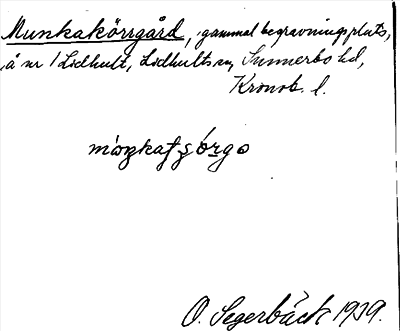 Munkakörrgård, gammal begravningsplats,
å nr 1 Lidhult, Lidhults sn, Sunnerbo hd,
Kronob. l.
O. Segerbäck 1939.